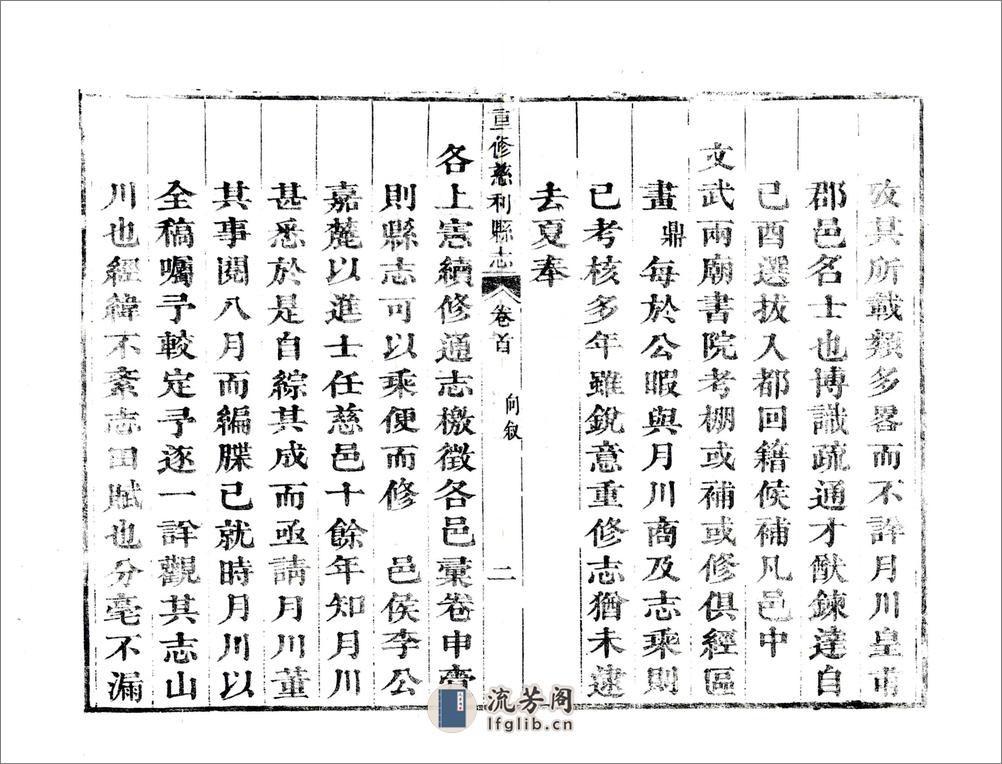 攷其所載類多畧而不詳月川皇甫
郡邑名士也博識疏通才猷鍊達自
已酉選拔入都回籍候補凡邑中
文武兩廟書院考棚或補或修俱經區
畫鼎每於公暇與月川商及志乘則
已考核多年雖銳意重修志猶未逮
去夏奉
重修慈利縣志 卷首 向叙 二
各上憲續修通志檄徵各邑彙卷申賫
則縣志可以乘便而修 邑侯李公
嘉麓以進士任慈邑十餘年知月川
甚悉於是自綜其成而亟請月川董
其事閱八月而編牒已就時月川以
全稿囑予較定予逐一詳觀其志山
川也經緯不紊志田賦也分毫不漏
流芳阁
lfglib.cn